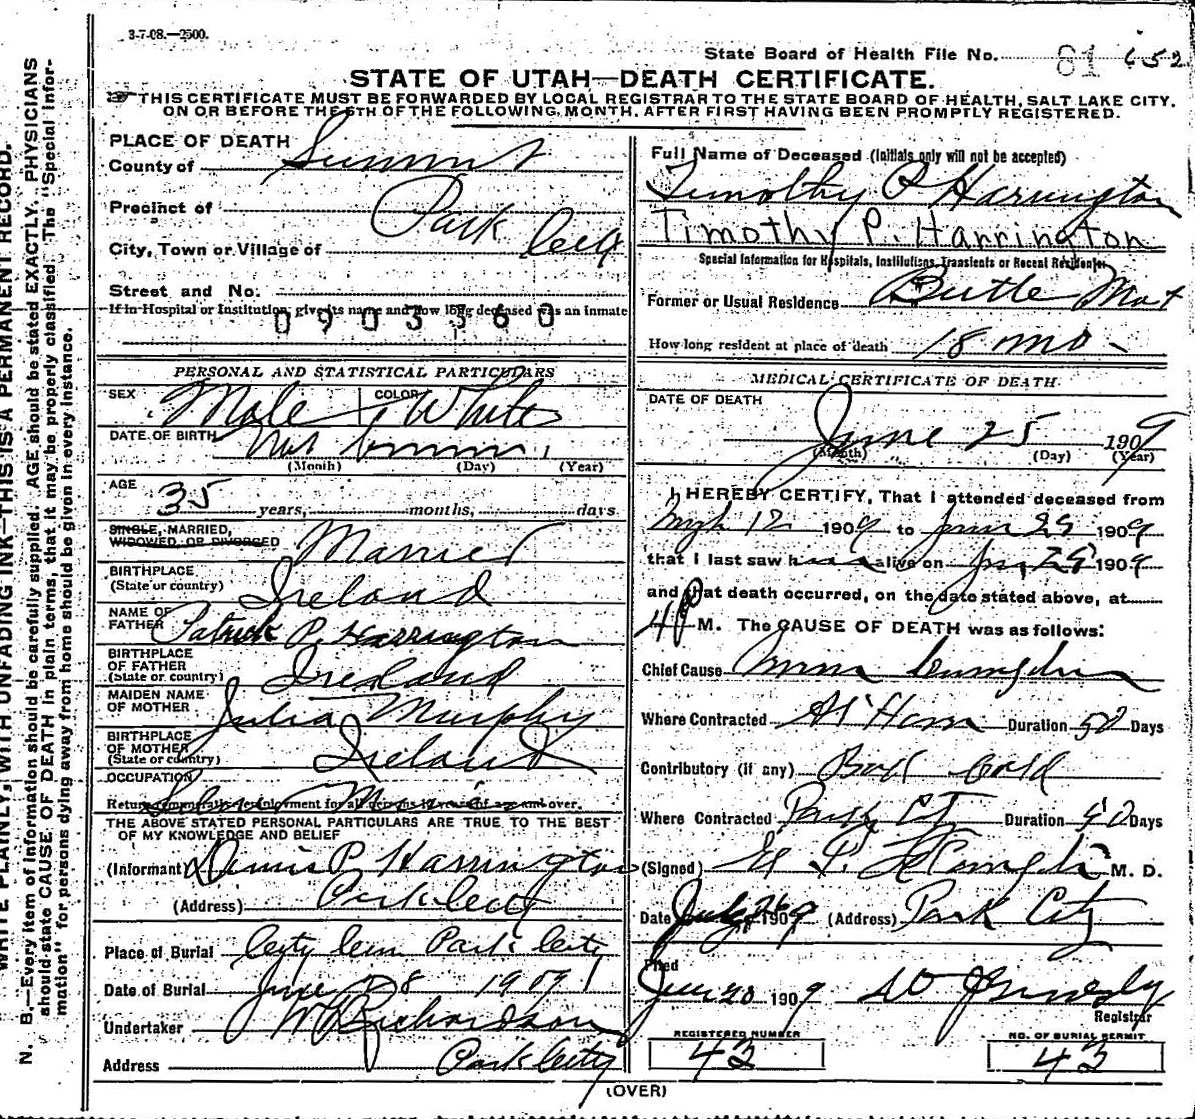 3-7-08.—2500.
State Board of Health File No. 81 652
STATE OF UTAH—DEATH CERTIFICATE.
THIS CERTIFICATE MUST BE FORWARDED BY LOCAL REGISTRAR TO THE STATE BOARD OF HEALTH, SALT LAKE CITY,
ON OR BEFORE THE 5TH OF THE FOLLOWING MONTH, AFTER FIRST HAVING BEEN PROMPTLY REGISTERED.
PLACE OF DEATH
County of Summit
Precinct of
Park City
City, Town or Village of
Street and No.
If in Hospital or Institution, give its name and how long deceased was an inmate
0903360
PERSONAL AND STATISTICAL PARTICULARS
SEX Male COLOR White
DATE OF BIRTH Not
(Month) (Day) (Year)
AGE 35 years, months, days
SINGLE, MARRIED,
WIDOWED OR DIVORCED Married
BIRTHPLACE
(State or country) Ireland
NAME OF
FATHER Patrick P. Harrington
BIRTHPLACE
OF FATHER
(State or country) Ireland
MAIDEN NAME
OF MOTHER Julia Murphy
BIRTHPLACE
OF MOTHER
(State or country) Ireland
OCCUPATION
THE ABOVE STATED PERSONAL PARTICULARS ARE TRUE TO THE BEST
OF MY KNOWLEDGE AND BELIEF
(Informant) Dennis P. Harrington
(Address) Park City
Place of Burial City Cem Park City
Date of Burial June 28 1909
Undertaker W Richardson
Address Park City
Full Name of Deceased (Initials only will not be accepted)
Timothy P Harrington
Timothy P. Harrington
Special Information for Hospitals, Institutions, Transients or Recent Residents
Former or Usual Residence Butte Mot
How long resident at place of death 18 mo -
MEDICAL CERTIFICATE OF DEATH
DATE OF DEATH
June 25 1909
(Month) (Day) (Year)
I HEREBY CERTIFY, That I attended deceased from
12 1909 to June 25 1909
that I last saw h alive on 25 1909
and that death occurred, on the date stated above, at
4 P M. The CAUSE OF DEATH was as follows:
Chief Cause
Where Contracted At Home Duration 50 Days
Contributory (if any) Bad Cold
Where Contracted Duration Days
(Signed) M. D.
Date 26 1909 (Address) Park City
Filed
1909
Registrar
REGISTERED NUMBER
43
NO. OF BURIAL PERMIT
43
(OVER)
WRITE PLAINLY, WITH UNFADING INK—THIS IS A PERMANENT RECORD.
N. B.—Every item of information should be carefully supplied. AGE should be stated EXACTLY. PHYSICIANS
should state CAUSE OF DEATH in plain terms, that it may be properly classified. The "Special Infor-
mation" for persons dying away from home should be given in every instance.